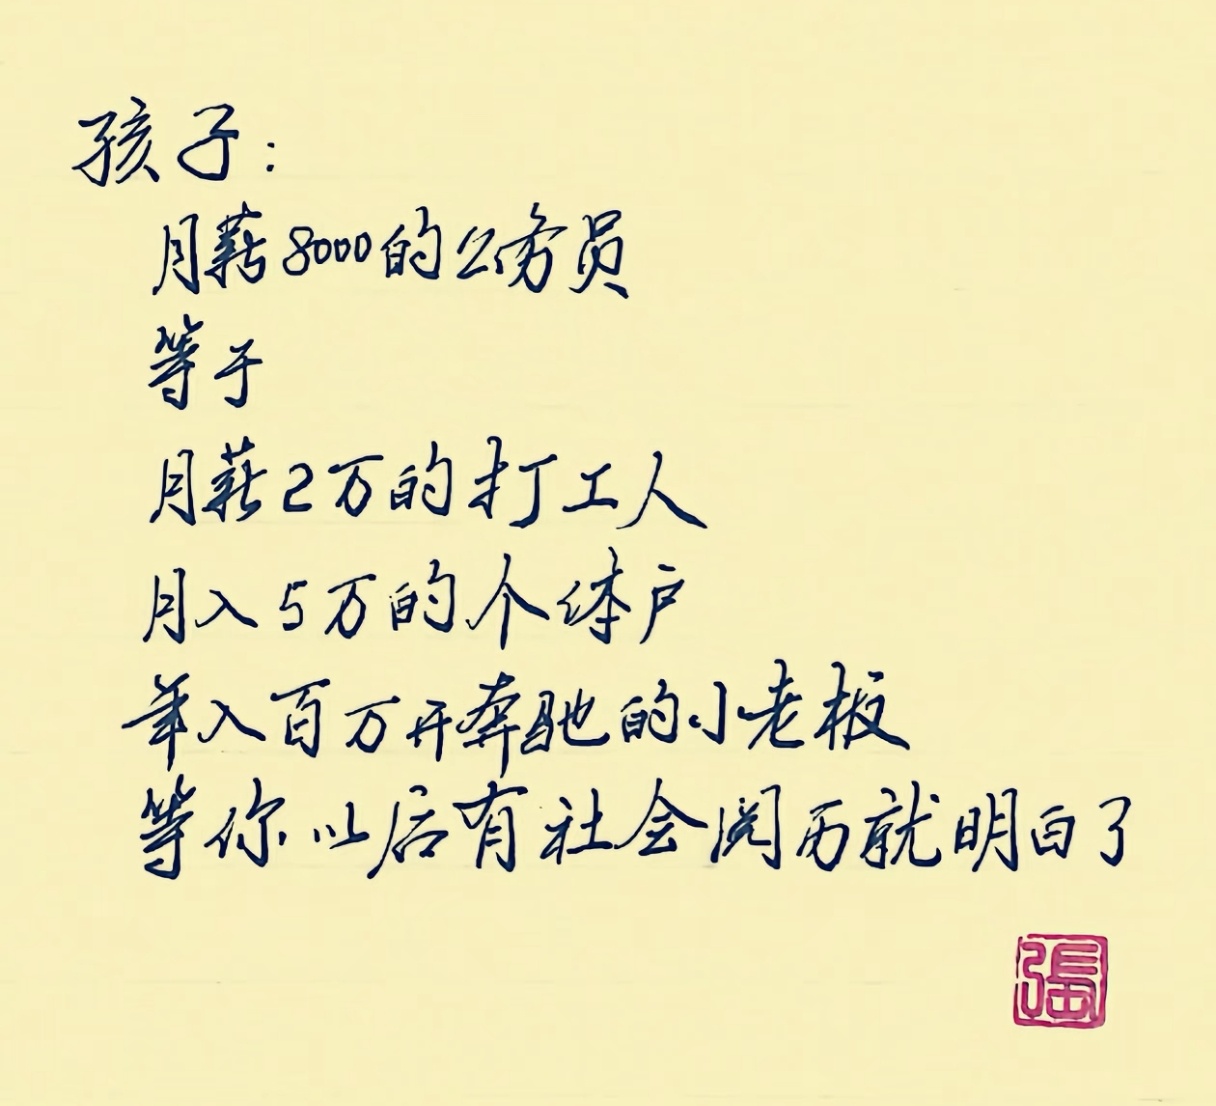 孩子：
月薪8000的公务员
等于
月薪2万的打工人
月入5万的个体户
年入百万开奔驰的小老板
等你以后有社会阅历就明白了
張